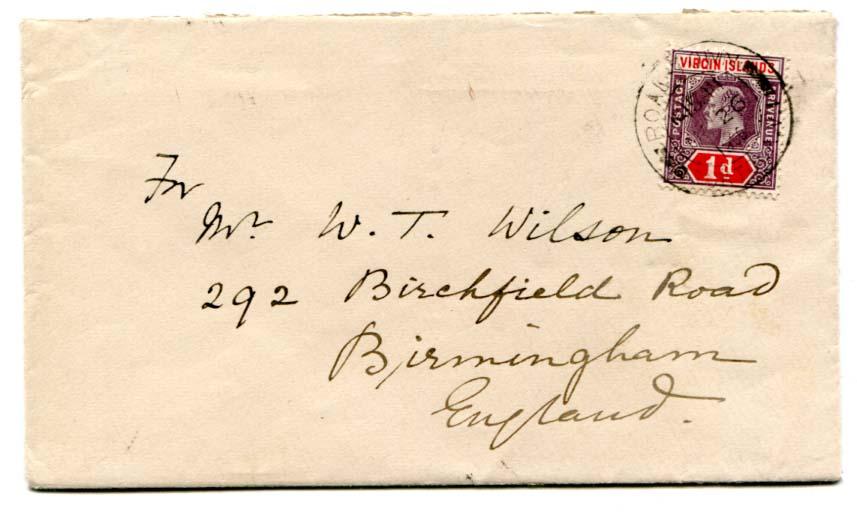 VIRGIN ISLANDS
POSTAGE
REVENUE
1d
For
Mr. W. T. Wilson
292 Birchfield Road
Birmingham
England.